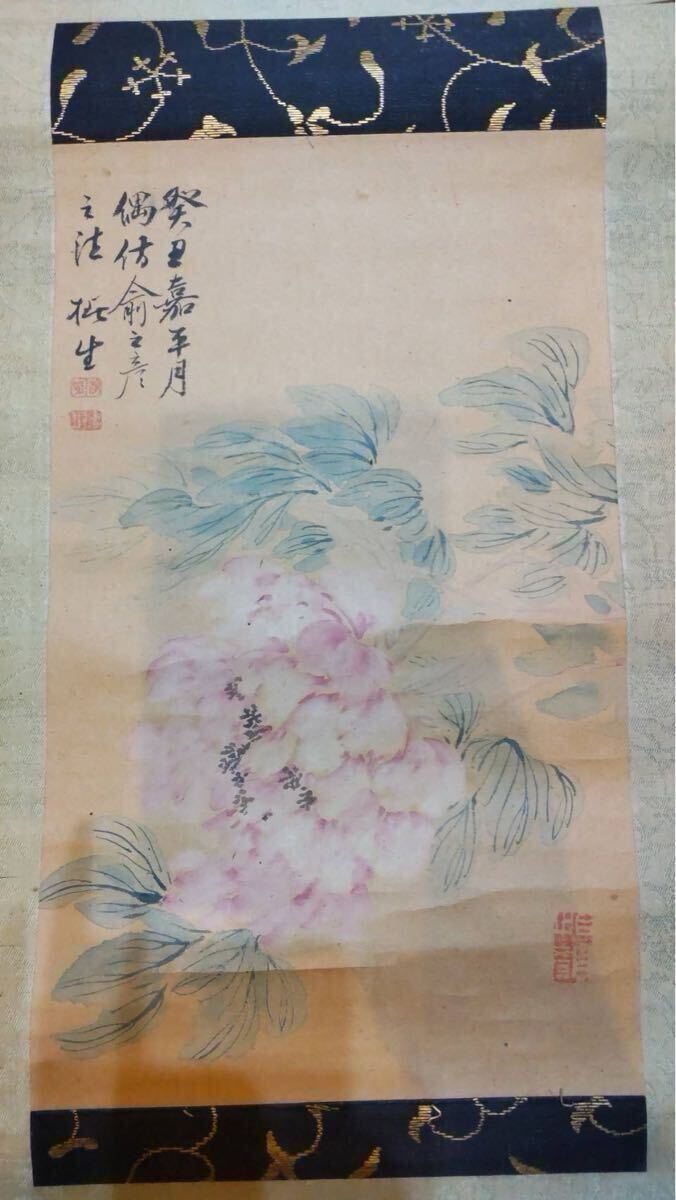 癸丑嘉平月
偶仿俞之彦
之法 椒生